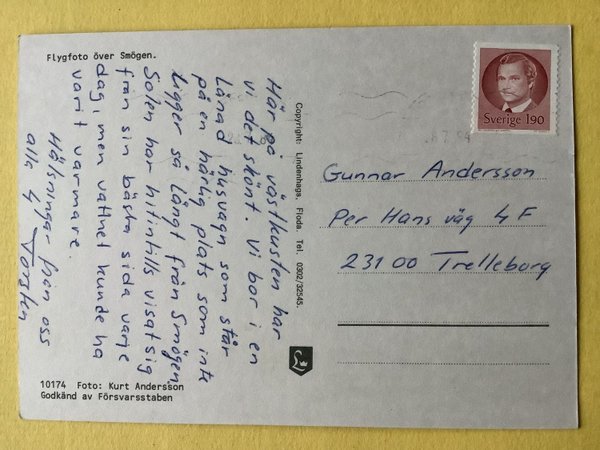 Flygfoto över Smögen.
Här på västkusten har
vi det skönt. Vi bor i en
lånad husvagn som står
på en härlig plats som inte
ligger så långt från Smögen
Solen har hitintills visat sig
från sin bästa sida varje
dag, men vattnet kunde ha
varit varmare.
Hälsningar från oss
alla 4 Torsten
10174 Foto: Kurt Andersson
Godkänd av Försvarsstaben
Copyright: Lindenhags, Floda. Tel. 0302/32545.
Sverige 190
Gunnar Andersson
Per Hans väg 4 F
231 00 Trelleborg